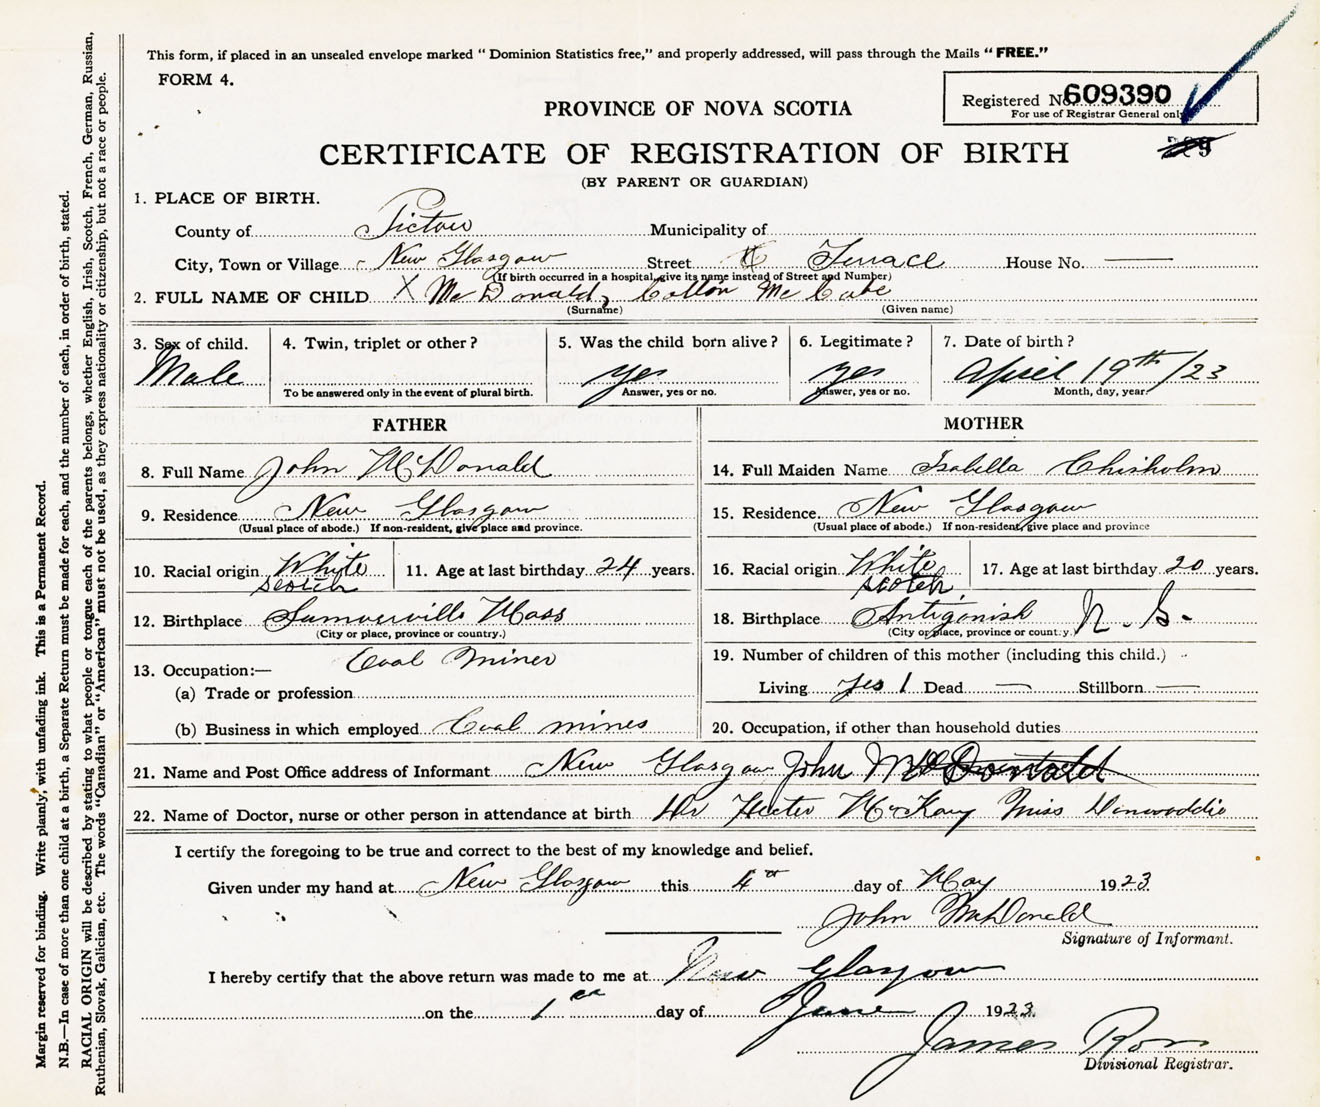 This form, if placed in an unsealed envelope marked " Dominion Statistics free," and properly addressed, will pass through the Mails " FREE."
FORM 4.
Registered No. 609390
For use of Registrar General only
PROVINCE OF NOVA SCOTIA
CERTIFICATE OF REGISTRATION OF BIRTH
(BY PARENT OR GUARDIAN)
1. PLACE OF BIRTH.
County of Pictou Municipality of
City, Town or Village New Glasgow Street Terrace House No. —
(If birth occurred in a hospital, give its name instead of Street and Number)
2. FULL NAME OF CHILD X McDonald, Colton McCabe
(Surname) (Given name)
3. Sex of child. 4. Twin, triplet or other? 5. Was the child born alive? 6. Legitimate? 7. Date of birth?
Male yes yes April 19th/23
To be answered only in the event of plural birth. Answer, yes or no. Answer, yes or no. Month, day, year.
FATHER MOTHER
8. Full Name John McDonald 14. Full Maiden Name Isabella Chisholm
9. Residence New Glasgow 15. Residence New Glasgow
(Usual place of abode.) If non-resident, give place and province. (Usual place of abode.) If non-resident, give place and province
10. Racial origin White 11. Age at last birthday 24 years. 16. Racial origin White 17. Age at last birthday 20 years.
scotch scotch
12. Birthplace Sumverville Mass 18. Birthplace Antigonish N. S.
(City or place, province or country.) (City or place, province or country.)
13. Occupation:— Coal Miner 19. Number of children of this mother (including this child.)
(a) Trade or profession Living yes 1 Dead — Stillborn —
(b) Business in which employed Coal mines 20. Occupation, if other than household duties
21. Name and Post Office address of Informant New Glasgow John McDonald
22. Name of Doctor, nurse or other person in attendance at birth Dr Hecter McKay Miss Dinwoddie
I certify the foregoing to be true and correct to the best of my knowledge and belief.
Given under my hand at New Glasgow this 4th day of May 1923
John McDonald
Signature of Informant.
I hereby certify that the above return was made to me at New Glasgow
on the 1 day of June 1923
James Ross
Divisional Registrar.
Margin reserved for binding. Write plainly, with unfading ink. This is a Permanent Record.
N.B.—In case of more than one child at a birth, a Separate Return must be made for each, and the number of each, in order of birth, stated.
RACIAL ORIGIN will be described by stating to what people or tongue each of the parents belongs, whether English, Irish, Scotch, French, German, Russian,
Ruthenian, Slovak, Galician, etc. The words "Canadian" or "American" must not be used, as they express nationality or citizenship, but not a race or people.